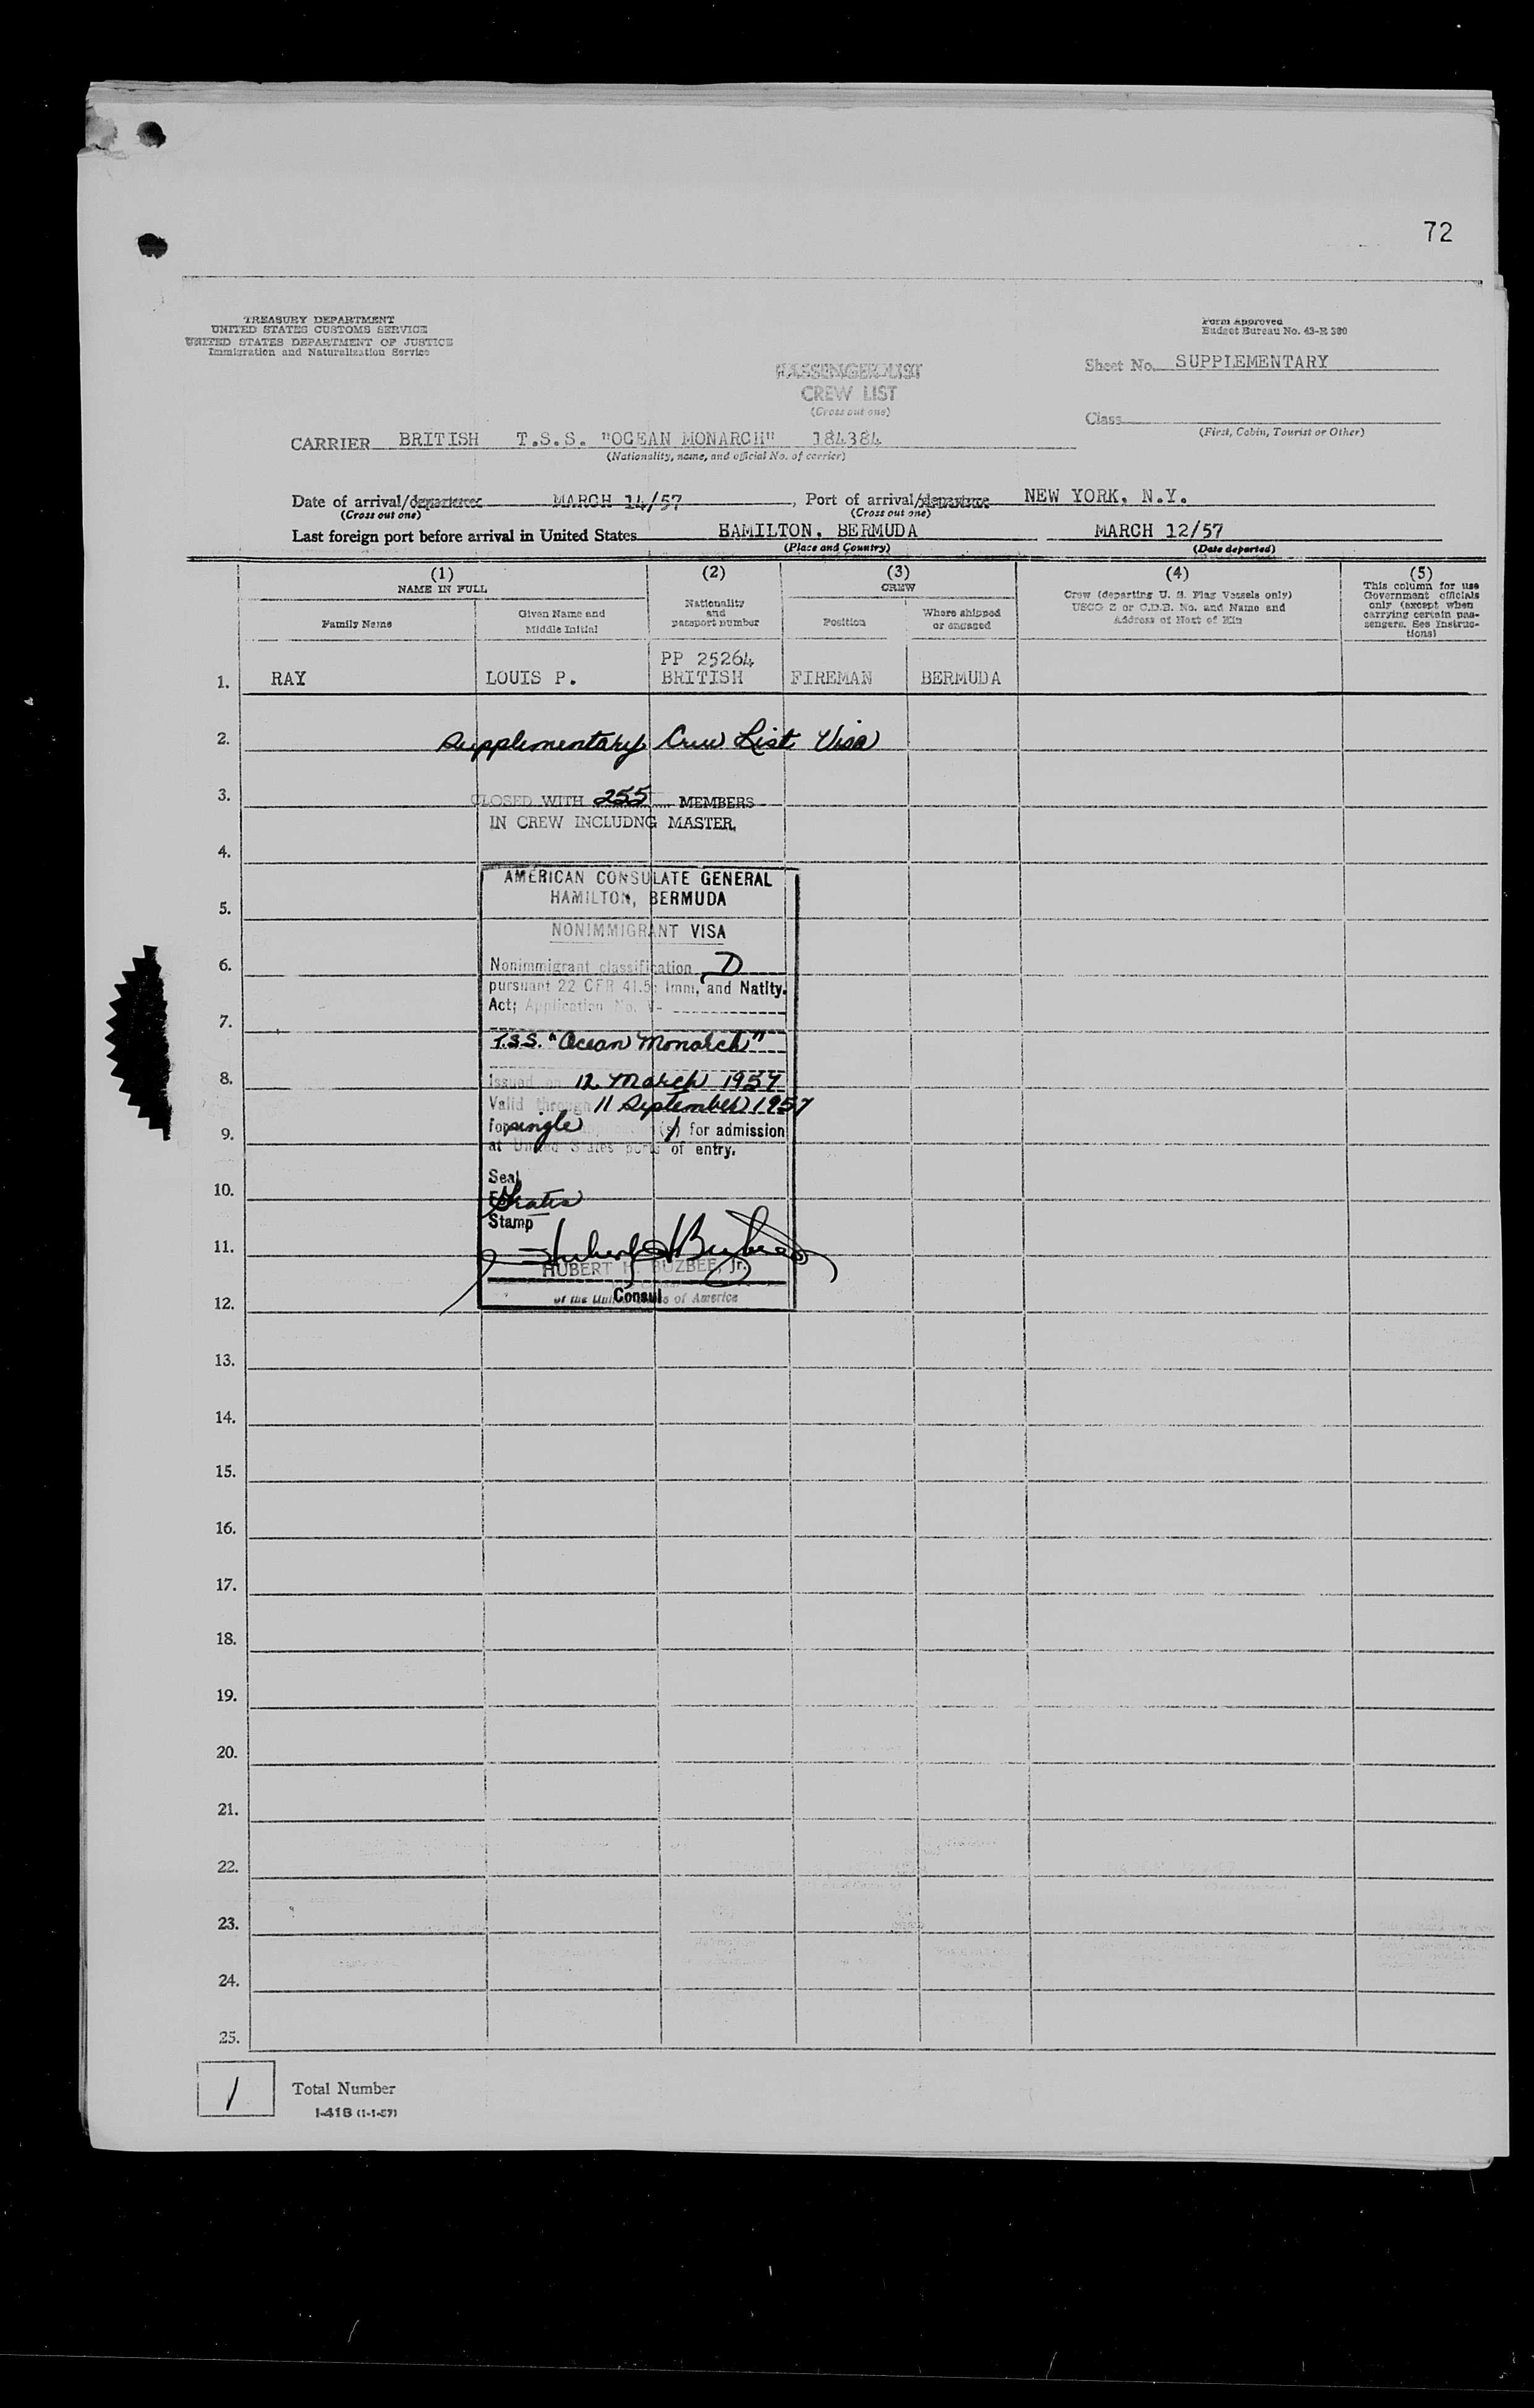 72
TREASURY DEPARTMENT
UNITED STATES CUSTOMS SERVICE
UNITED STATES DEPARTMENT OF JUSTICE
Immigration and Naturalization Service
Form Approved
Budget Bureau No. 43-R 380
Sheet No. SUPPLEMENTARY
PASSENGER LIST
CREW LIST
(Cross out one)
Class
(First, Cabin, Tourist or Other)
CARRIER BRITISH T.S.S. "OCEAN MONARCH" 184384
(Nationality, name, and official No. of carrier)
Date of arrival/departure MARCH 14/57, Port of arrival/departure NEW YORK, N.Y.
(Cross out one) (Cross out one)
Last foreign port before arrival in United States HAMILTON, BERMUDA MARCH 12/57
(Place and Country) (Date departed)
(1) (2) (3) (4) (5)
NAME IN FULL
Family Name
Given Name and
Middle Initial
Nationality
and
passport number
CREW
Position
Where shipped
or engaged
Crew (departing U. S. Flag Vessels only)
USCG Z or C.D.B. No. and Name and
Address of Next of Kin
This column for use
Government officials
only (except when
carrying certain pas-
sengers. See Instruc-
tions)
PP 25264
1. RAY LOUIS P. BRITISH FIREMAN BERMUDA
2. Supplementary Crew List Visa
3. CLOSED WITH 255 MEMBERS
IN CREW INCLUDNG MASTER.
4.
AMERICAN CONSULATE GENERAL
HAMILTON, BERMUDA
5.
NONIMMIGRANT VISA
6. Nonimmigrant classification D
pursuant 22 CFR 41.5; Imm, and Natlty.
Act; Application No. V-
7.
T.S.S. "Ocean Monarch"
8. Issued on 12 March 1957
Valid through 11 September 1957
9. for single application(s) for admission
at United States ports of entry.
Seal
10.
Stamp
11.
HUBERT H. BUZBEE, Jr.
Consul
12. of the United States of America
13.
14.
15.
16.
17.
18.
19.
20.
21.
22.
23.
24.
25.
1 Total Number
I-418 (1-1-57)